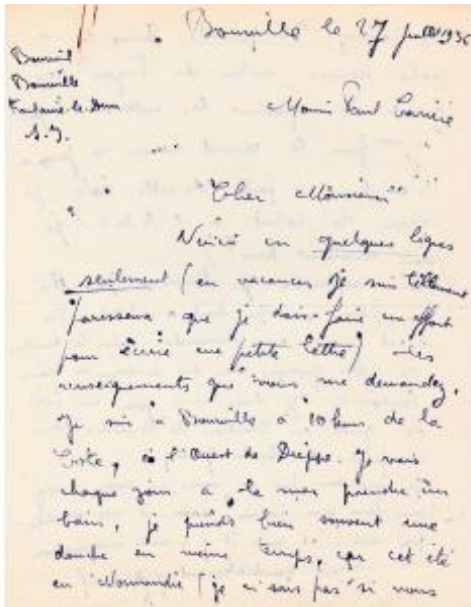 Bourville le 27 juillet 193
Bourville
Fontaine-le-Dun
S. I.
Paul Carrière
Cher Monsieur
Voici en quelques lignes
seulement (en vacances je suis tellement
paresseux que je dois faire un effort
pour écrire une petite lettre) les
renseignements que vous me demandez.
Je suis à Bourville à 10 kms de la
Côte, à l'Ouest de Dieppe. Je vais
chaque jour à la mer prendre un
bain, je prends bien souvent une
douche en même temps, car cet été
en Normandie (je ne sais pas si vous